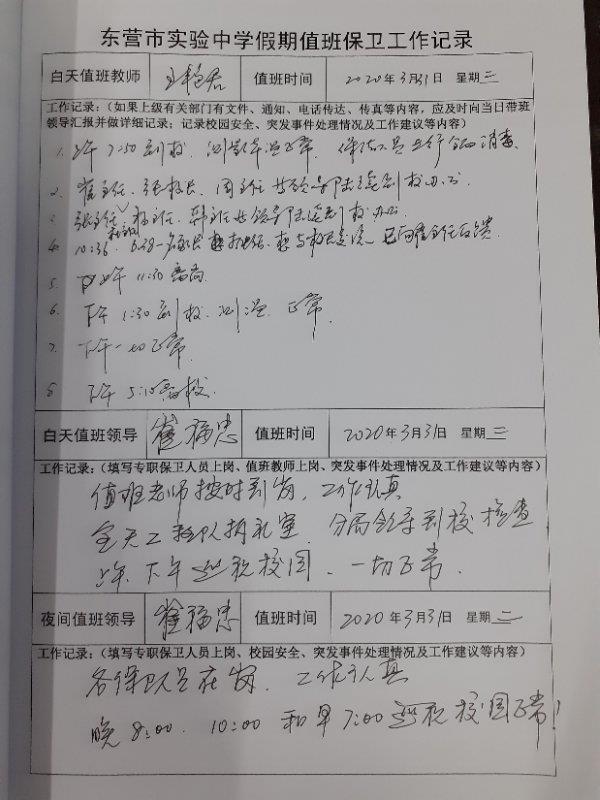 东营市实验中学假期值班保卫工作记录
白天值班教师 王艳君 值班时间 2020年3月31日 星期二
工作记录:(如果上级有关部门有文件、通知、电话传达、传真等内容,应及时向当日带班
领导汇报并做详细记录;记录校园安全、突发事件处理情况及工作建议等内容)
1. 上午7:50到校,测量体温正常,保洁人员进行全面消毒.
2. 崔主任、张校长、周主任等领导陆续到校办公
3. 张主任、主任、韩主任等领导陆续到校办公
4. 10:36 一名家长
5. 上午11:30离岗
6. 下午1:30到校.测温正常.
7. 下午一切正常.
8 下午5:10离校.
白天值班领导 崔福忠 值班时间 2020年3月31日 星期二
工作记录:(填写专职保卫人员上岗、值班教师上岗、突发事件处理情况及工作建议等内容)
值班老师按时到岗,工作认真
全天工 分局领导到校检查
上午、下午巡视校园、一切正常.
夜间值班领导 崔福忠 值班时间 2020年3月31日 星期二
工作记录:(填写专职保卫人员上岗、校园安全、突发事件处理情况及工作建议等内容)
各保卫人员在岗.工作认真
晚8:00.10:00和早7:00巡视校园正常!